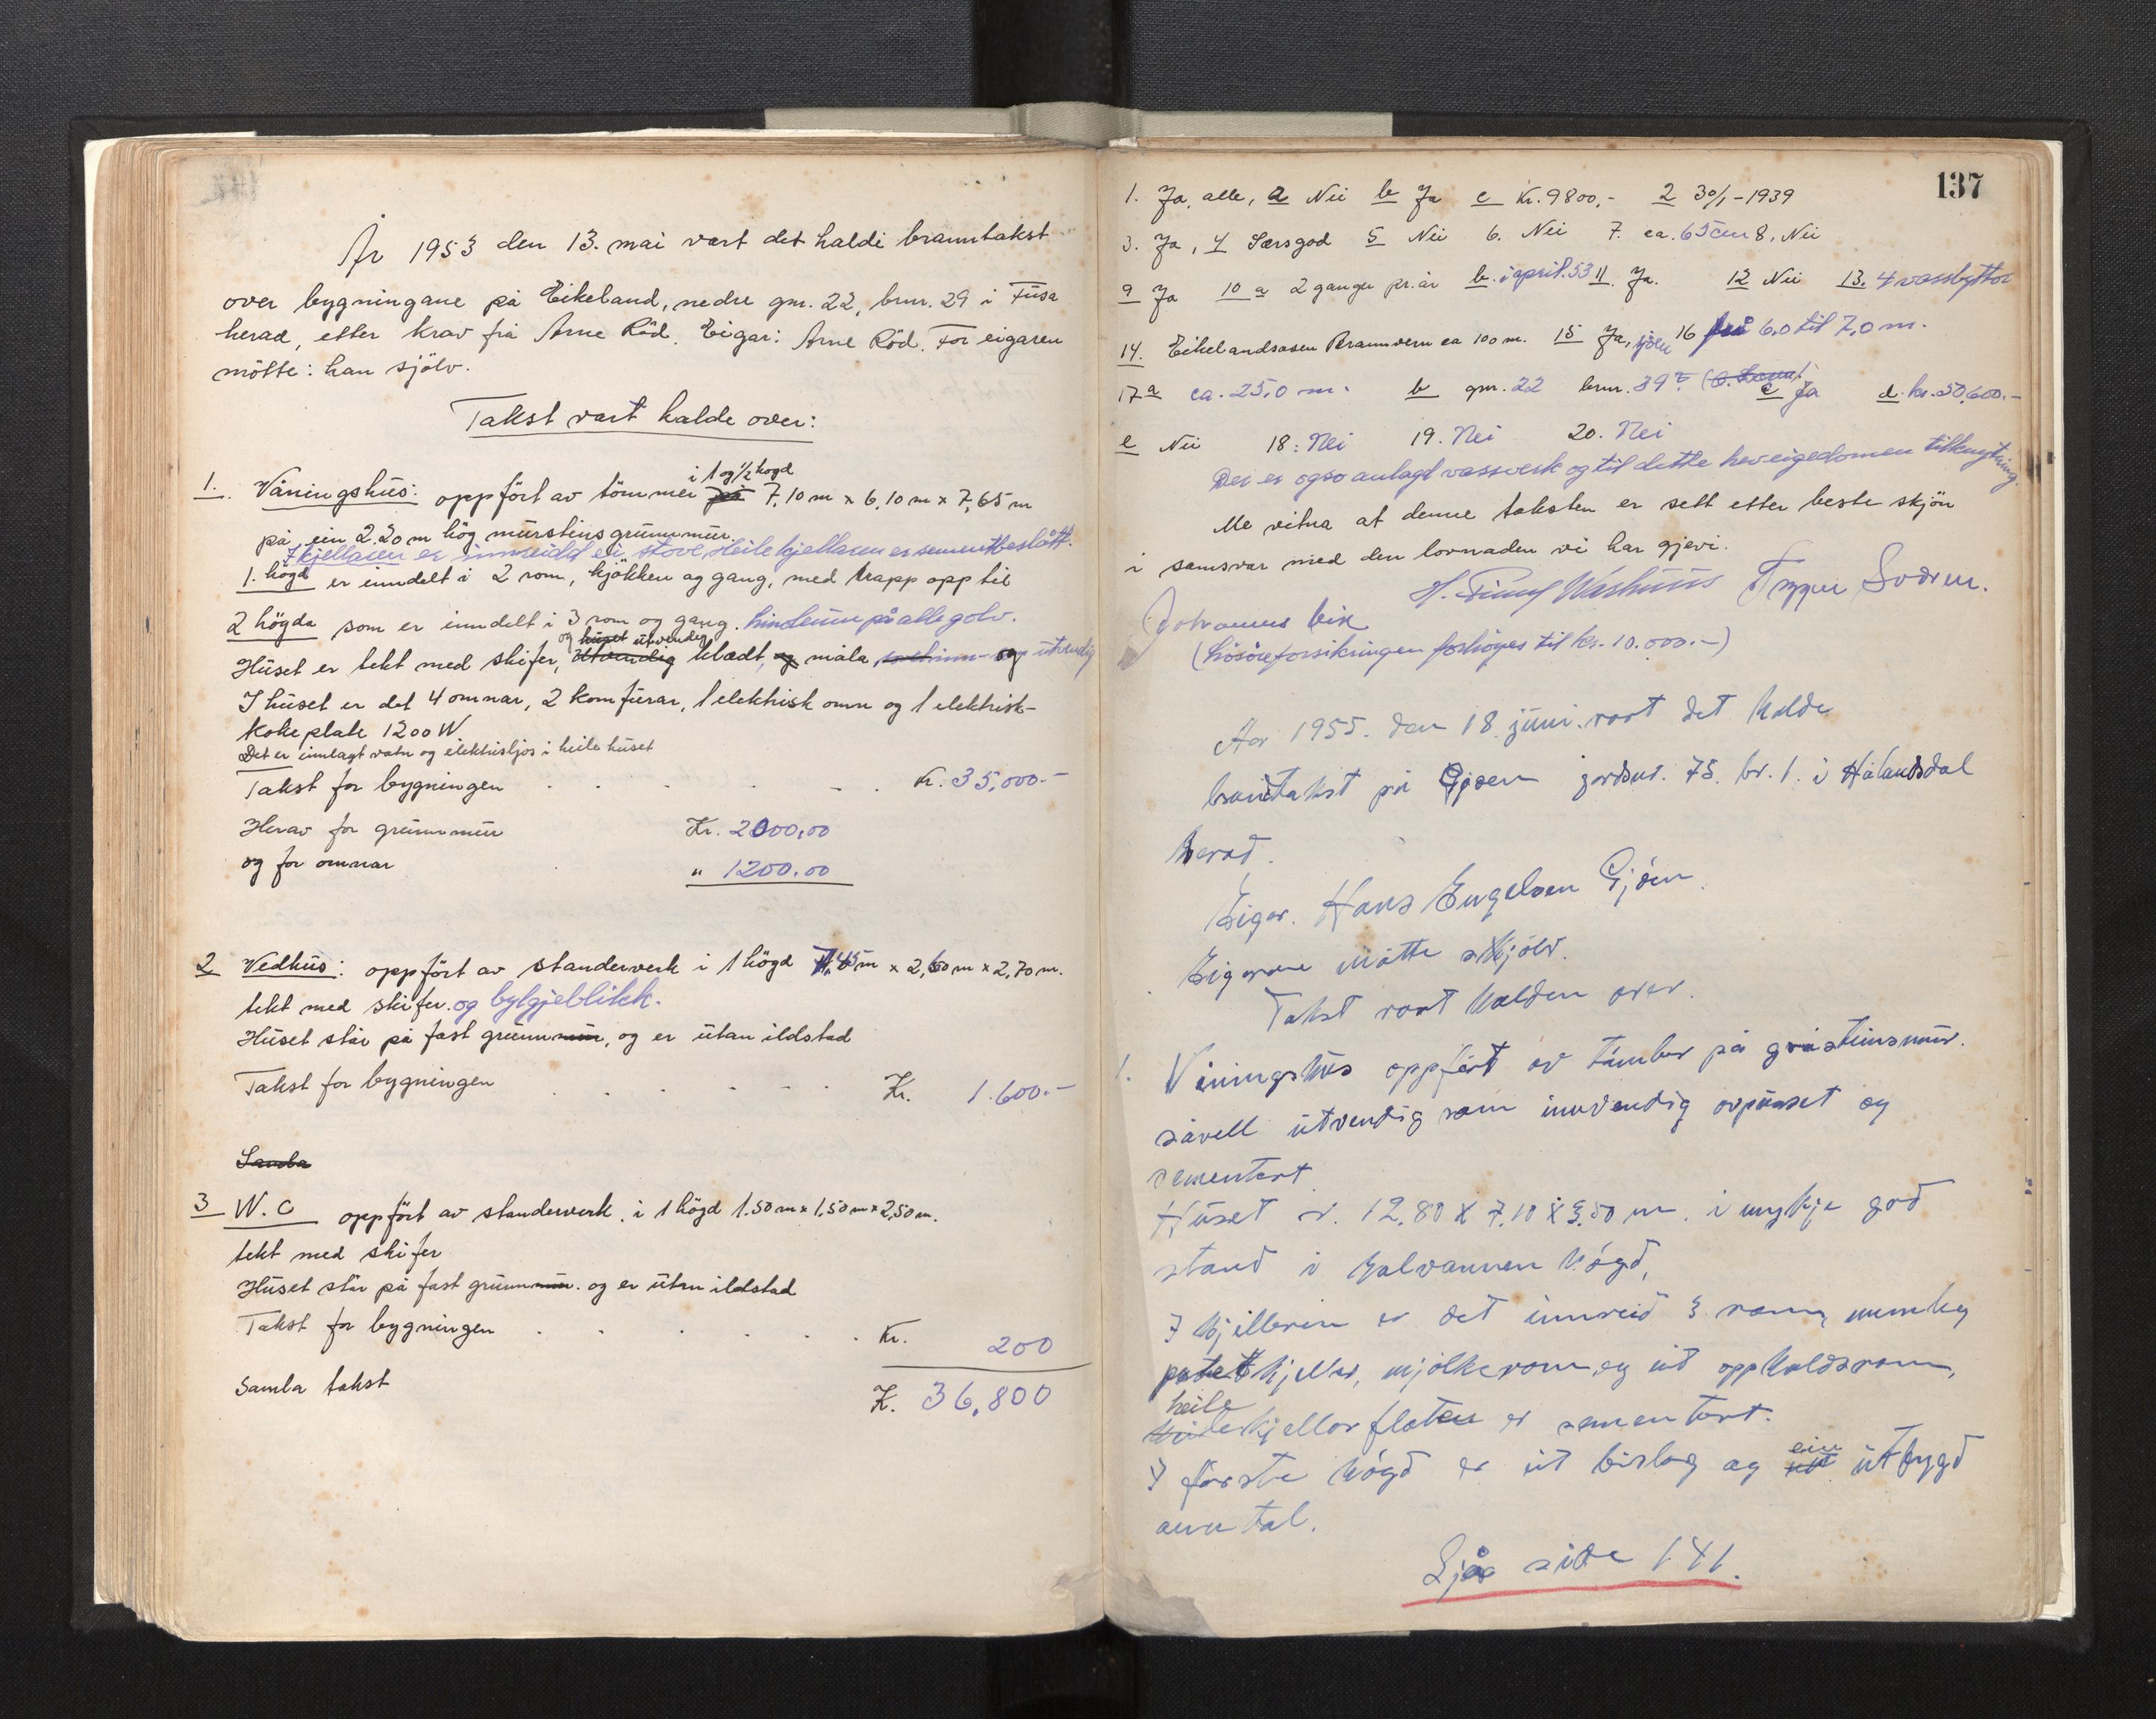 År 1953 den 13. mai vart det haldi branntakst
over bygningane på Eikeland, nedre gnr. 22, brnr. 29 i Fusa
herad, etter krav frå Arne Röd. Eigar: Arne Röd. For eigaren
mötte: han sjölv.
Takst vart halde over:
1. Våningshüs: oppfört av tömmer i 1 og ½ högd 7,10 m x 6,10 m x 7,65 m
på ein 2.20 m hög mürsteinsgrünnmür.
I kjellaren er innreidd ei stove. Heile kjellaren er sementbeslått.
1. högd er inndelt i 2 rom, kjökken og gang, med trapp opp til
2 högda som er inndelt i 3 rom og gang. linoleum på alle golv.
Hüset er tekt med skifer, og hüset ütvendig klædt, og måla ütvendig
I hüset er det 4 omnar, 2 komfürar, 1 elektrisk omn og 1 elektrisk-
kokeplate 1200 W.
Det er innlagt vatn og elektrisljos i heile hüset
Takst for bygningen . . . . Kr. 35,000.-
Herav for grünnmür Kr. 2000,00
og for omnar " 1200.00
2 Vedhüs: oppfört av standerverk i 1 högd 7,45 m x 2,60 m x 2,70 m.
tekt med skifer. og bylgjeblikk.
Hüset står på fast grünnmür, og er ütan ildstad
Takst for bygningen . . . . Kr. 1.600.-
Samla
3 W.C oppfört av standerverk. i 1 högd 1.50 m x 1,50 m x 2,50 m.
tekt med skifer
Hüset står på fast grünnmür. og er ütan ildstad
Takst for bygningen . . . . Kr. 200
Samla takst K. 36,800
137
1. Ja, alle, a Nei b Ja c Kr. 9800,- 2 30/1-1939
3. Ja, 4 Særsgod 5 Nei 6. Nei 7. ca. 65 cm 8, Nei
9 Ja 10 a 2 ganger pr. år b. i april. 53 11. Ja. 12 Nei 13. 4 vassbyttor
14. Eikelandsosen Brannvern ca 100 m. 15 Ja, sjöen 16 frå 6,0 til 7,0 m.
17 a ca. 25,0 m. b gnr. 22 brnr. 39? c Ja d. kr. 50,600.-
e Nei 18: Nei 19. Nei 20. Nei
Det er ogso anlagd vassverk og til dette hev eigedomen tilknytning.
Me vitna at denne taksten er sett etter beste skjön
i samsvar med den lovnaden vi har gjevi.
Johannes Eik
(Lösöreforsikringen forhöyes til kr. 10.000.-)
Aar 1955. den 18. juni. vart det halde
branntakst på Gjøen jordnr. 75. br. 1. i Hålandsdal
herad.
Eigar. Hans Engelsen Gjöen.
Eigaren mötte sjölv.
Takst vart halden over.
1. Våningshüs oppfört av tömber på gråsteinsmür.
såvell ütvendig som innvendig avpüsset og
sementert.
Hüset er. 12.80 X 7.10 X 3.50 m. i mykje god
stand i halvannen högd,
I kjelleren er det innreid 3 rom, nemleg
potetkjeller, mjölkerom, og eit oppholdsrom,
heile kjellarflaten er sementert.
I förste högd er eit bislag og ein ütbygd
Sjå side 141.